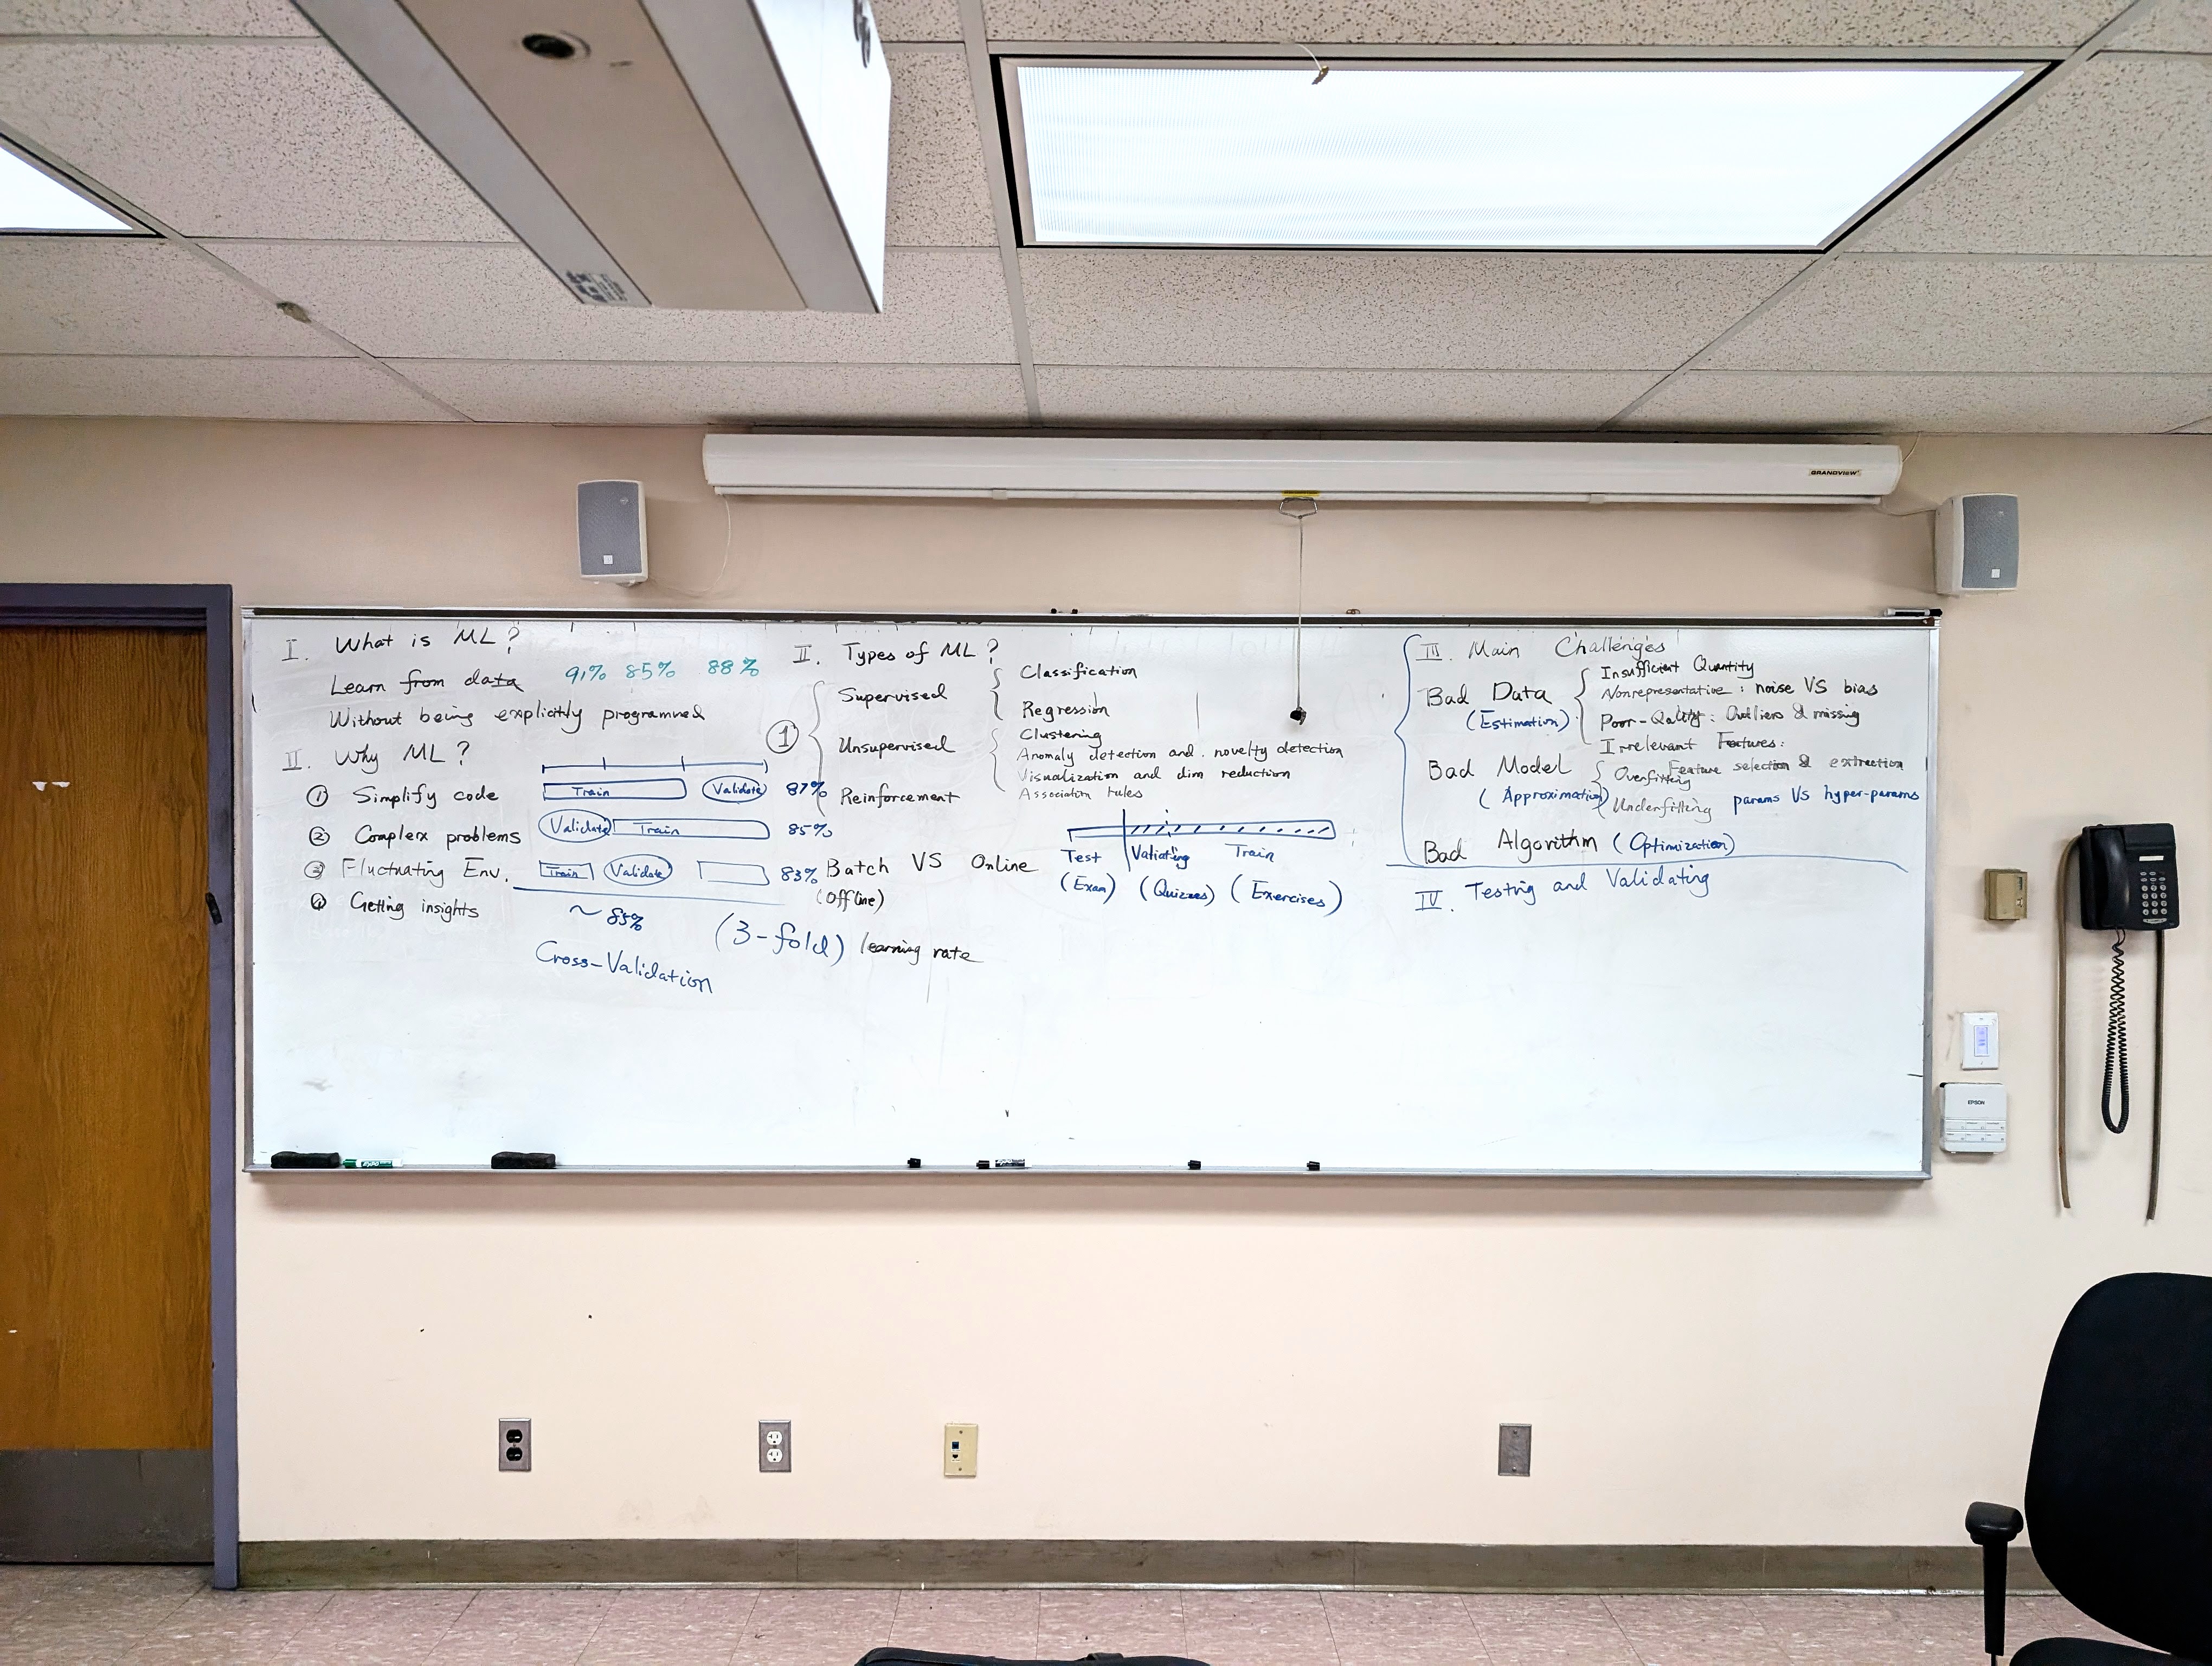 GRANDVIEW
I. What is ML?
Learn from data 91% 85% 88%
Without being explicitly programmed
II. Why ML?
① Simplify code
② Complex problems
③ Fluctuating Env.
④ Getting insights
Train Validate 87%
Validate Train 85%
Train Validate 83%
~ 85%
Cross-Validation
(3-fold) learning rate
II. Types of ML?
①
Supervised
Classification
Regression
Unsupervised
Clustering
Anomaly detection and novelty detection
Visualization and dim reduction
Association rules
Reinforcement
Batch VS Online
(Offline)
Test Train
(Exam) (Quizzes) (Exercises)
III. Main Challenges
Bad Data
(Estimation)
Insufficient Quantity
Nonrepresentative: noise VS bias
Poor-Qality: Outliers & missing
Irrelevant Features:
Feature selection & extraction
Bad Model
(Approximation)
Overfitting
Underfitting params Vs hyper-params
Bad Algorithm (Optimization)
IV. Testing and Validating
EPSON